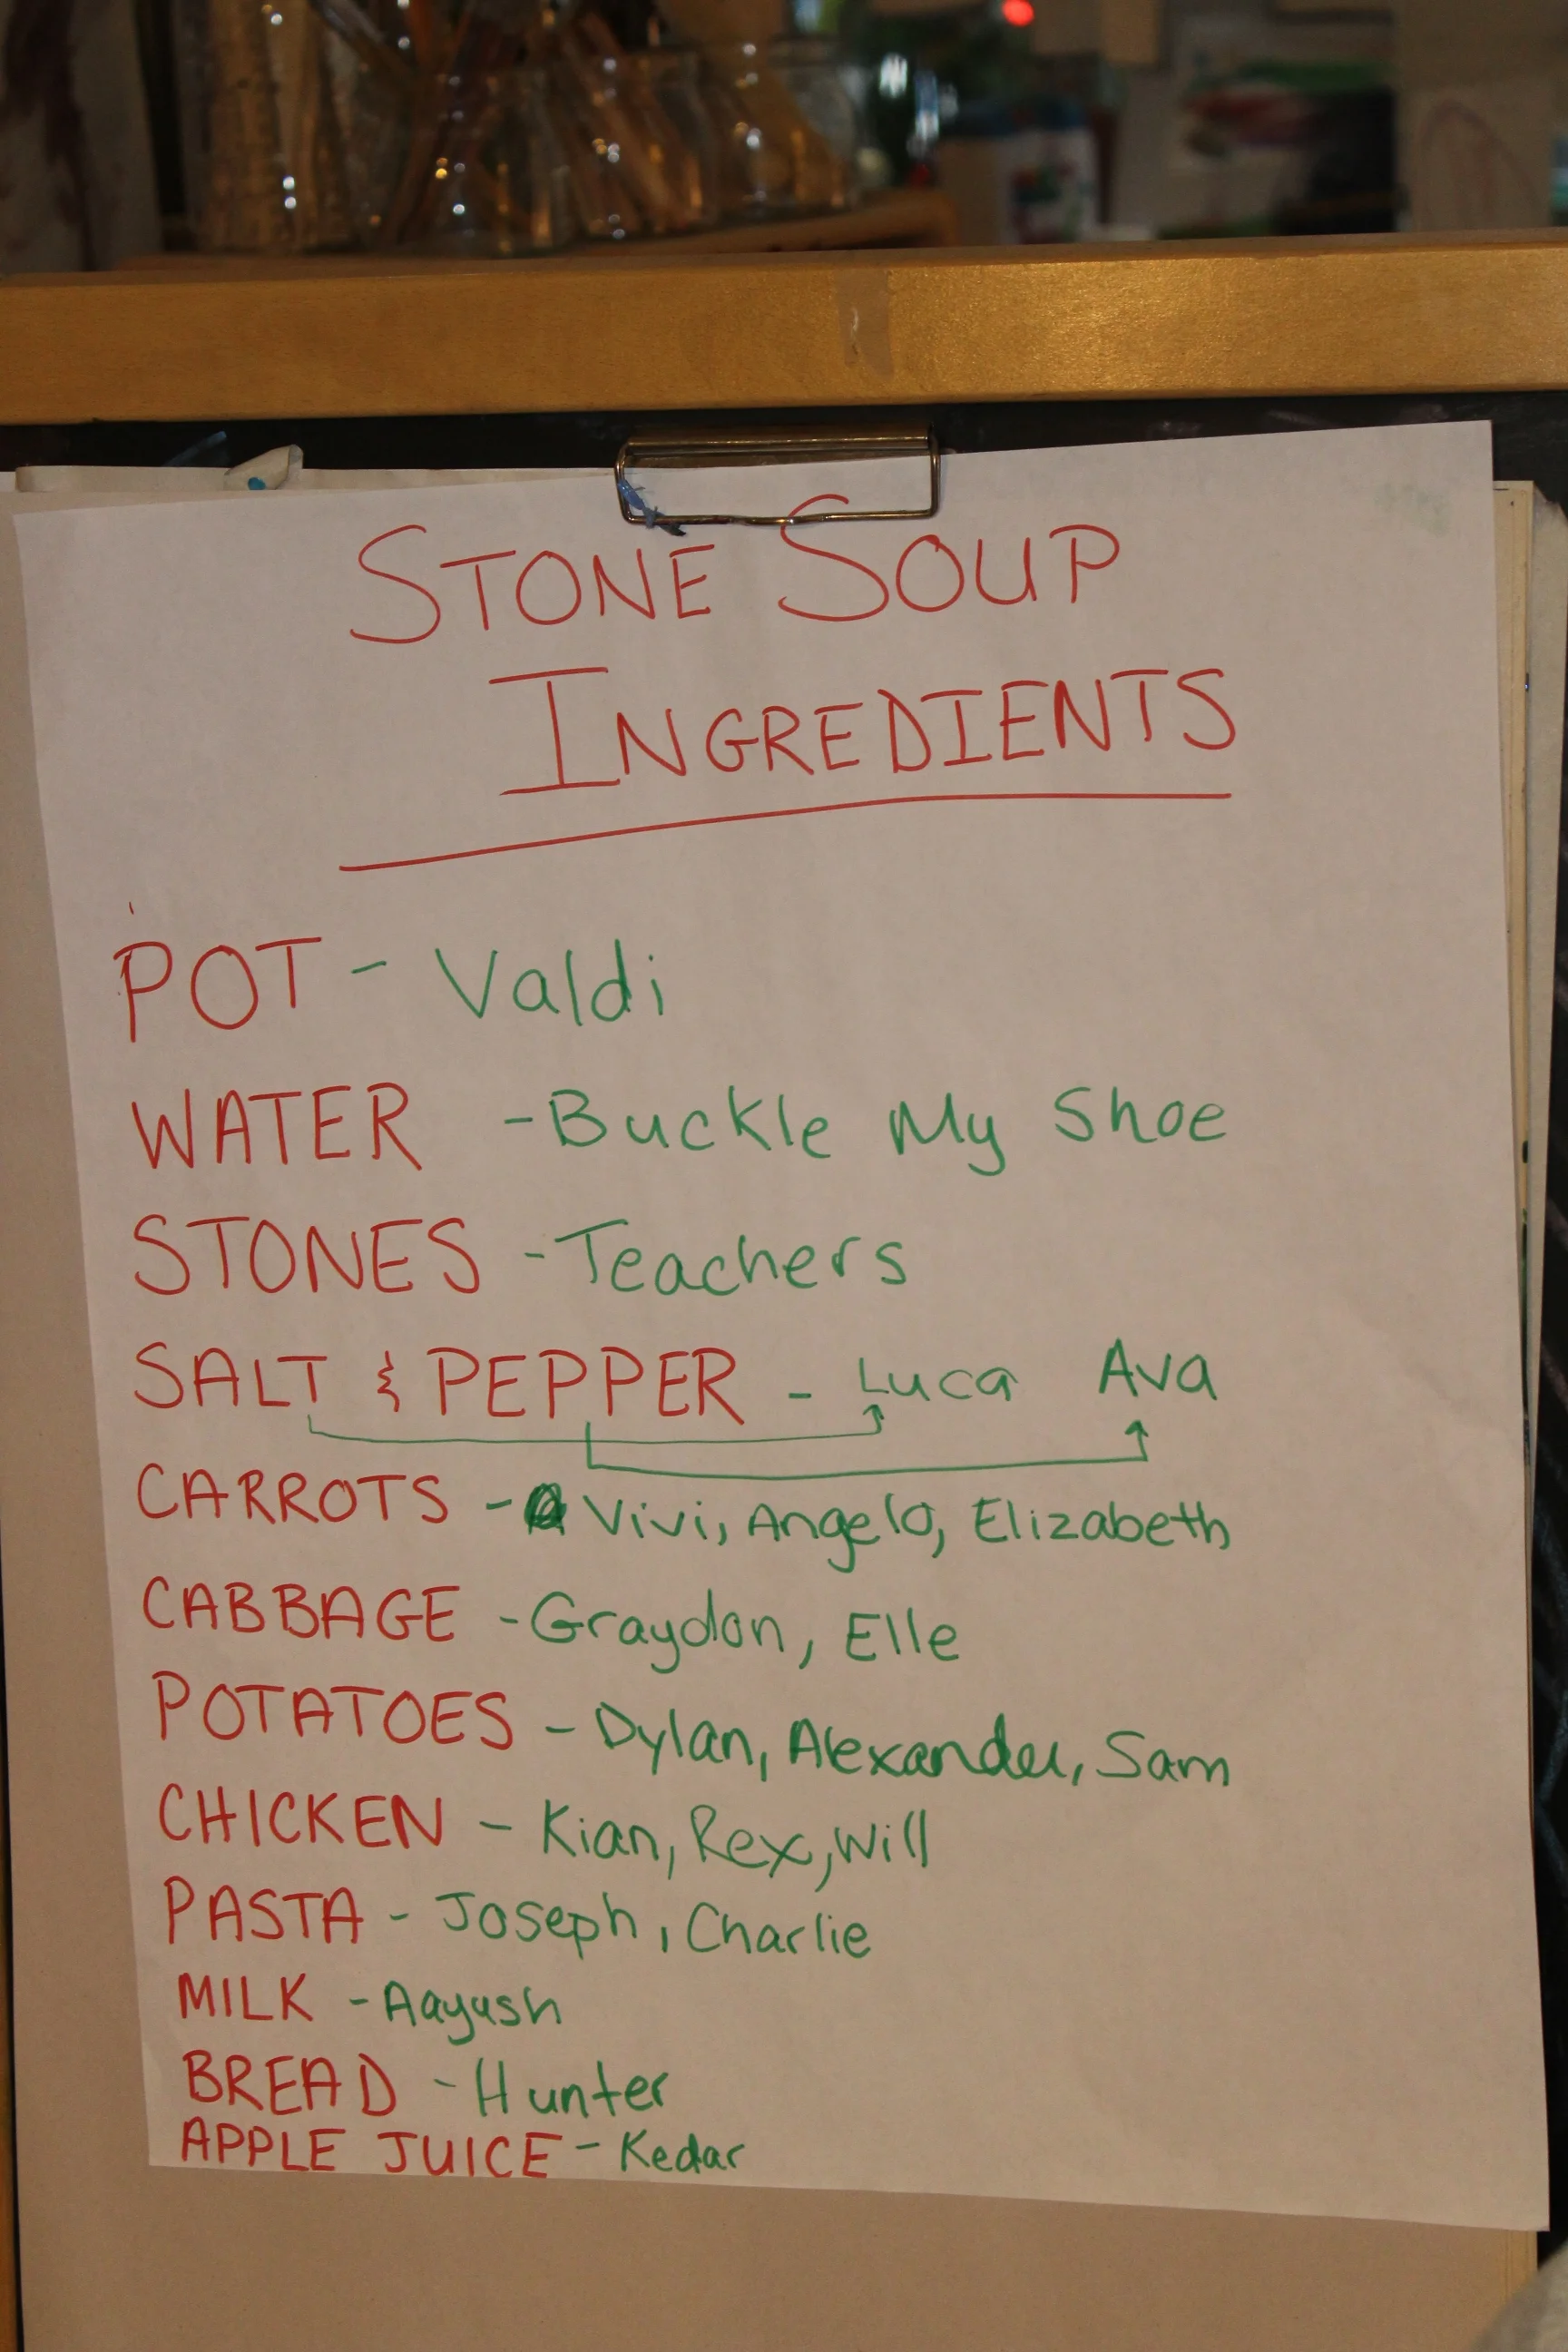 STONE SOUP
INGREDIENTS
POT - Valdi
WATER - Buckle My Shoe
STONES - Teachers
SALT & PEPPER - Luca Ava
CARROTS - Vivi, Angelo, Elizabeth
CABBAGE - Graydon, Elle
POTATOES - Dylan, Alexander, Sam
CHICKEN - Kian, Rex, Will
PASTA - Joseph, Charlie
MILK - Aayush
BREAD - Hunter
APPLE JUICE - Kedar